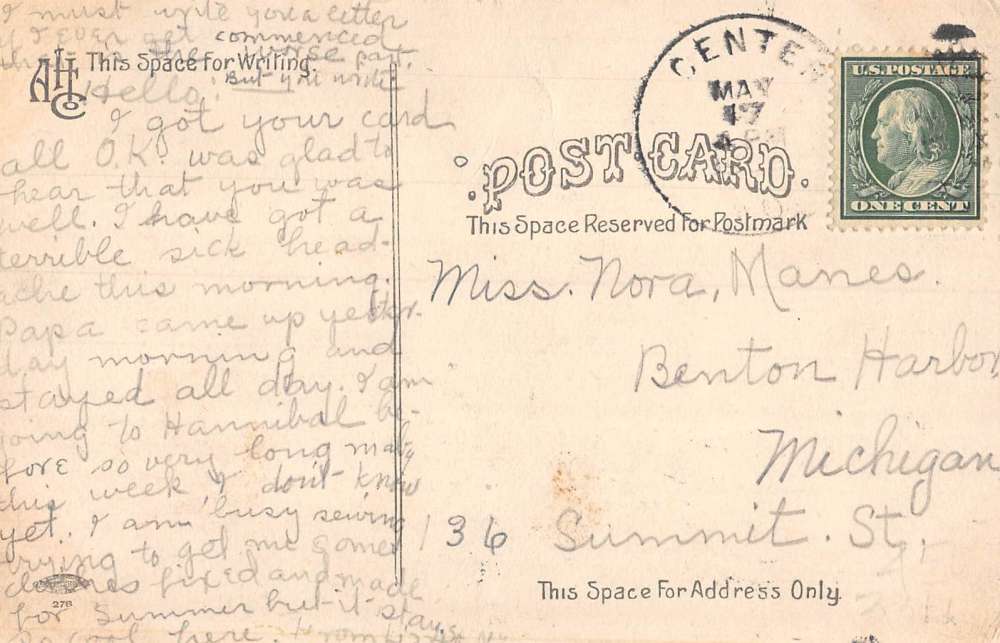 I must write you a letter
if I ever get commenced
that is the worse part.
But you write
AHC Co
This Space for Writing
Hello:
I got your card
all O.K. was glad to
hear that you was
well. I have got a
terrible sick head-
ache this morning.
Papa came up yester-
day morning and
stayed all day. I am
going to Hannibal be-
fore so very long
this week I don't know
yet. I am busy sewing
trying to get me some
clothes fixed and made
for Summer but it stays
so cool here. From
276
CENTER
MAY
17
U.S. POSTAGE
ONE CENT
POST CARD.
This Space Reserved For Postmark
Miss. Nora, Manes.
Benton Harbor
Michigan
136 Summit. St,
This Space For Address Only.